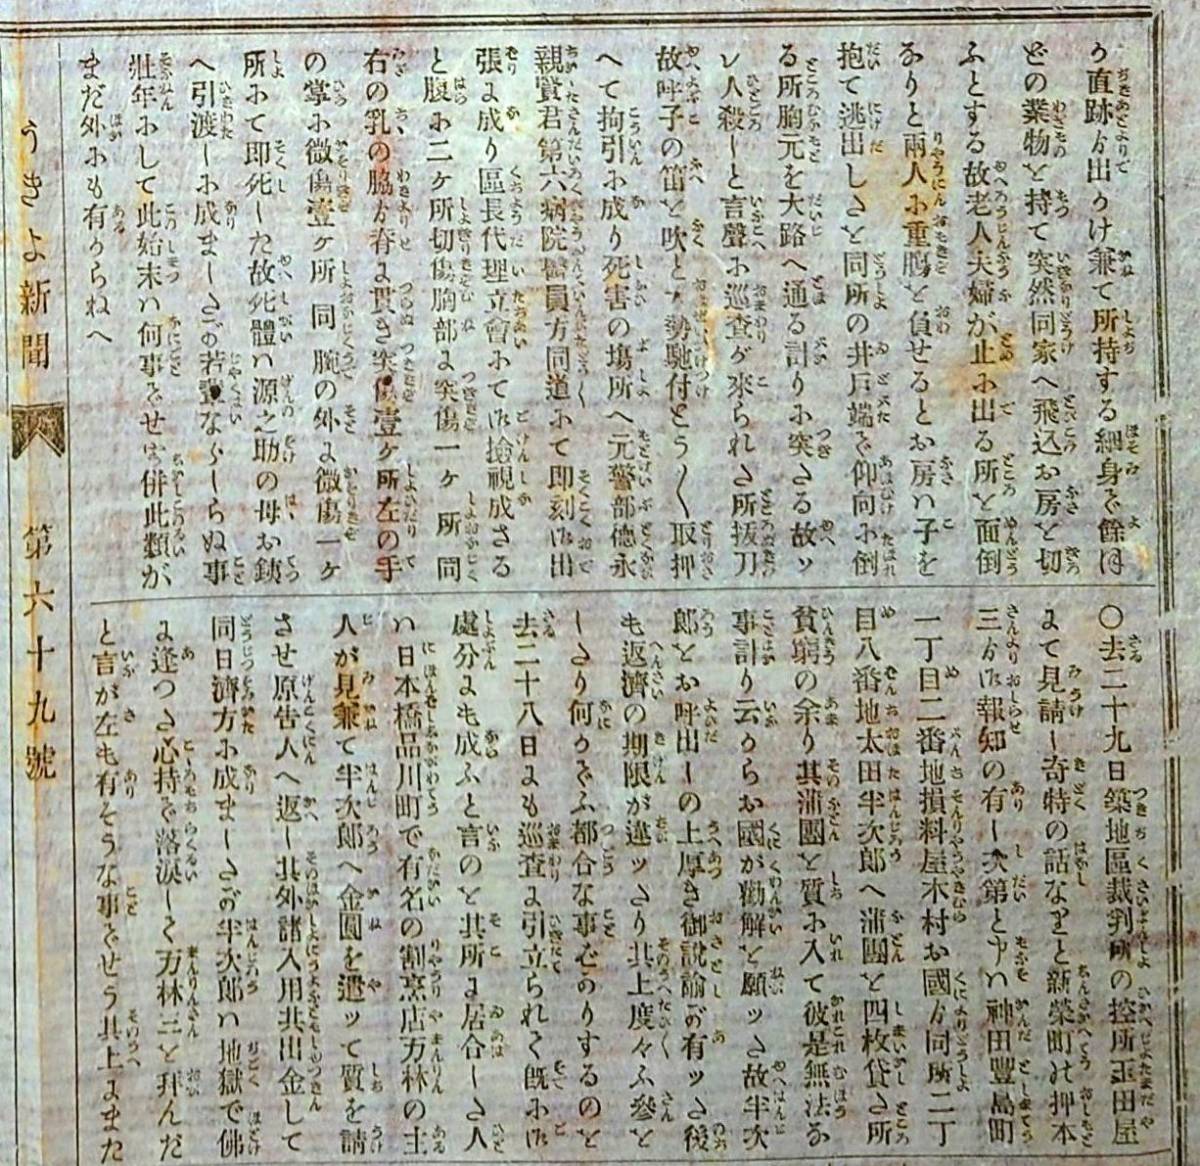 直跡ゟ出かけ兼て所持する細身で餘ほ
どの業物を持て突然同家へ飛込お房を切
ふとする故老人夫婦が止に出る所を面倒
なりと兩人に重傷を負せるとお房ハ子を
抱て逃出しさを同所の井戸端で仰向に倒
る所胸元を大路へ通る計りに突さる故ッ
レ人殺しと言聲に巡査が來られさ所抜刀
故呼子の笛を吹と大勢馳付とう〳〵取押
へて拘引に成り死害の塲所へ元警部徳永
親賢君第六病院醫員方同道にて即刻御出
張よ成り區長代理立會にて御撿視成さる
と腹に二ケ所切傷胸部よ突傷一ケ所同
右の乳の脇ゟ脊よ貫き突傷壹ケ所左の手
の掌に微傷壹ケ所同腕の外よ微傷一ケ
所にて即死した故死體ハ源之助の母お銕
へ引渡しに成ましさが若輩ならしらぬ事
壯年にして此始末ハ何事でせは併此類が
まだ外にも有からねへ
〇去二十九日築地區裁判所の控所玉田屋
よて見請し奇特の話なりと新榮町の押本
三ゟ御報知の有し次第を申ハ神田豐島町
一丁目二番地損料屋木村お國ゟ同所二丁
目八番地太田半次郎へ蒲團を四枚貸さ所
貧窮の余り其蒲團を質に入て彼是無法な
事計り云からお國が勸解を願ッさ故半次
郎をお呼出しの上厚き御説諭が有ッさ後
も返濟の期限が違ッさり其上度々ふ參を
しさり何かでふ都合な事どのりするのを
去二十八日よも巡査よ引立られて既に御
處分よも成ふと言のを其所よ居合しさ人
ハ日本橋品川町で有名の割烹店万林の主
人が見兼て半次郎へ金圓を遣ッて質を請
させ原告人へ返し其外諸入用共出金して
同日濟方に成ましさが半次郎ハ地獄で佛
よ逢つさ心持で落涙して万林三を拜んだ
と言が左も有そうな事でせう其上よまた
うきよ新聞 第六十九號